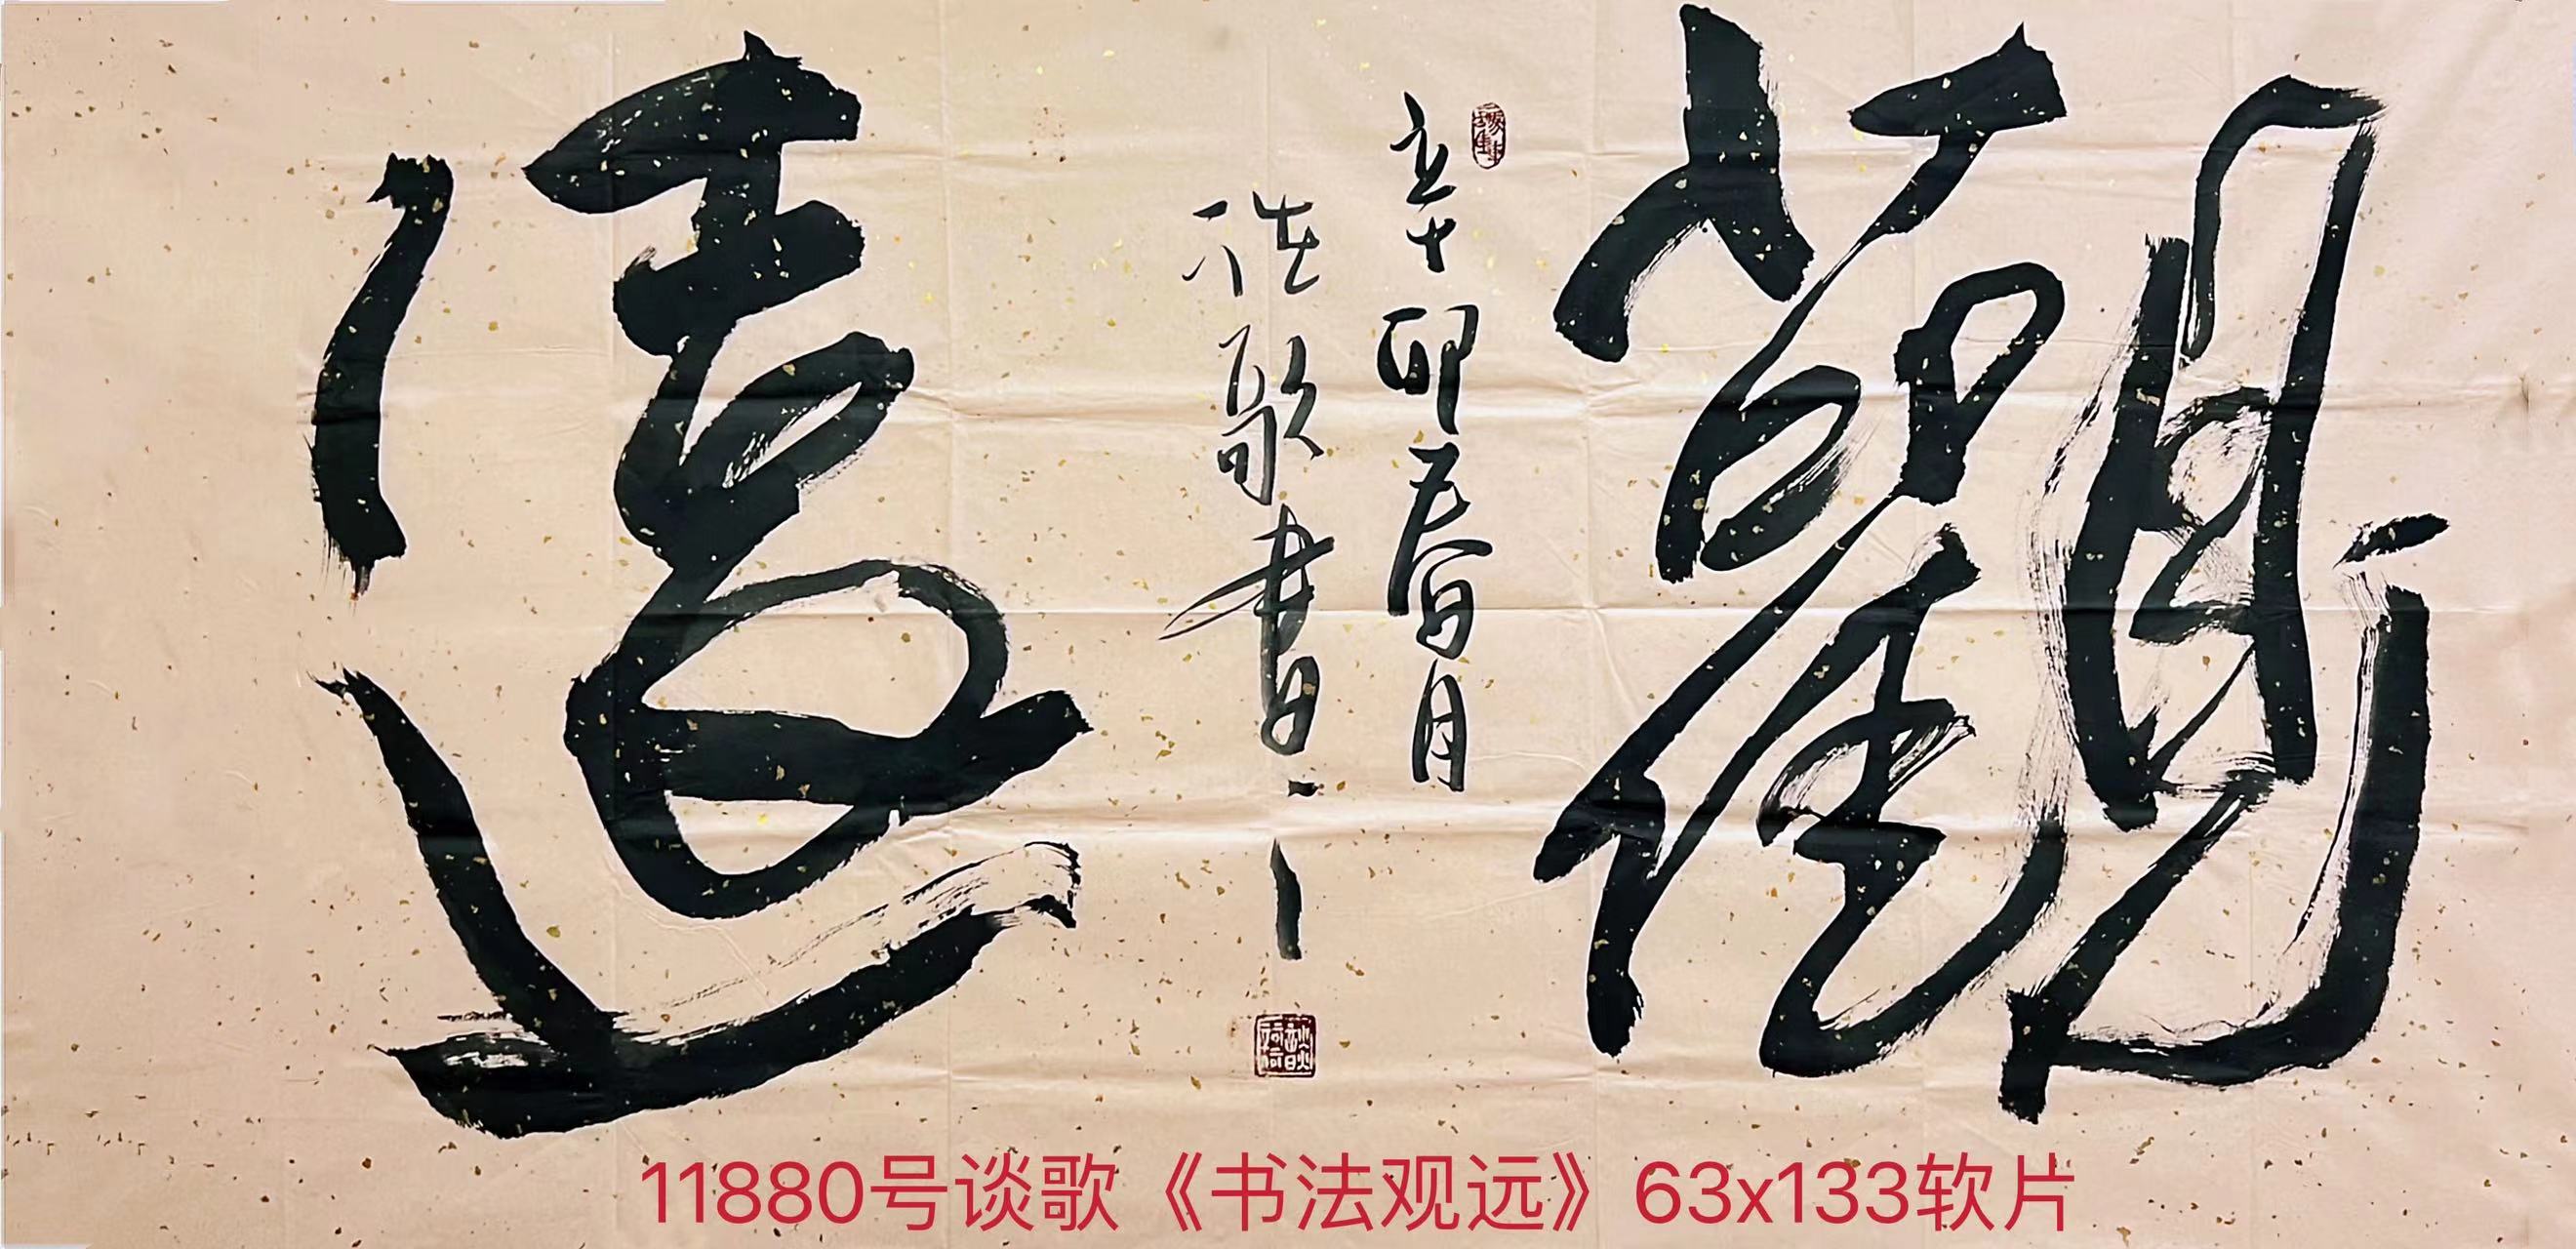 觀遠
辛卯春月
談歌書
11880号谈歌《书法观远》63x133软片